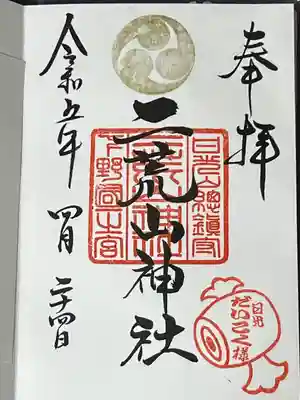 奉拝
日光総鎮守
二荒山神社
下野国一之宮
令和五年 四月 二十四日
日光
だいこく様